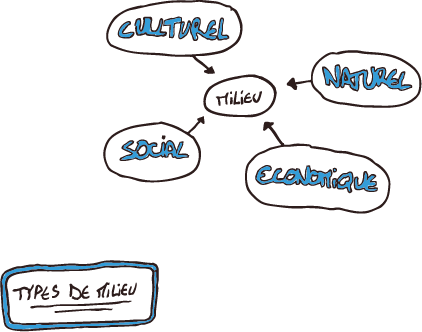 CULTUREL
NATUREL
MILIEU
SOCIAL
ECONOMIQUE
TYPES DE MILIEU